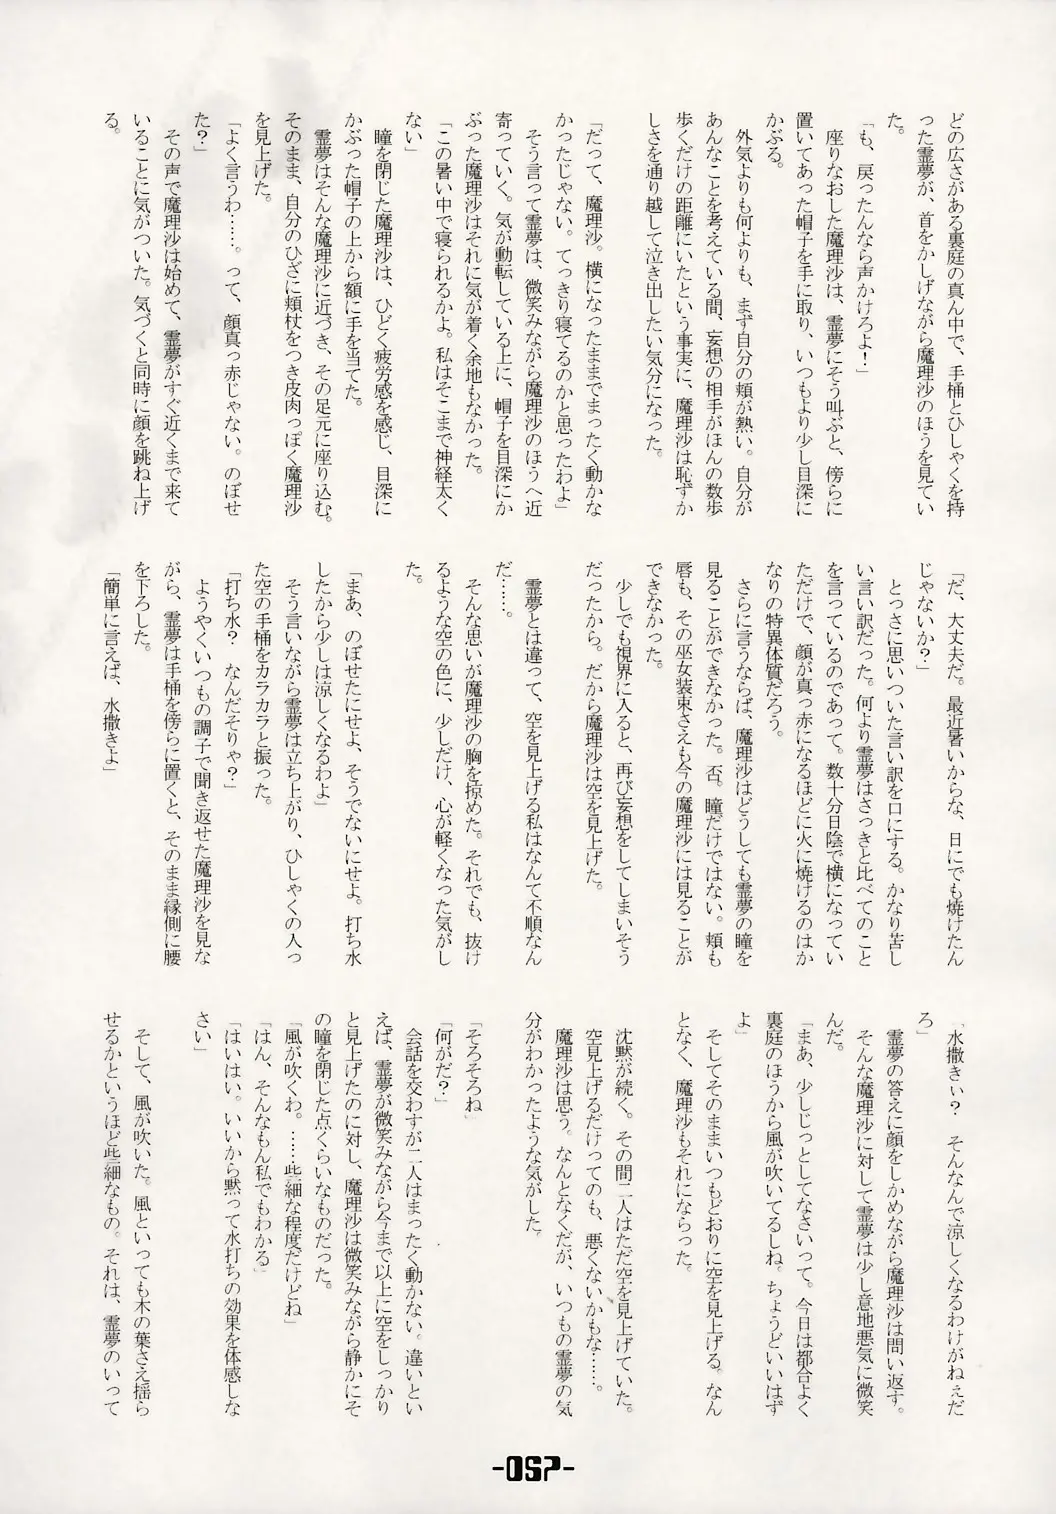 どの広さがある裏庭の真ん中で、手桶とひしゃくを持
った霊夢が、首をかしげながら魔理沙のほうを見てい
た。
「も、戻ったんなら声かけろよ！」
　座りなおした魔理沙は、霊夢にそう叫ぶと、傍らに
置いてあった帽子を手に取り、いつもより少し目深に
かぶる。
　外気よりも何よりも、まず自分の頬が熱い。自分が
あんなことを考えている間、妄想の相手がほんの数歩
歩くだけの距離にいたという事実に、魔理沙は恥ずか
しさを通り越して泣き出したい気分になった。
「だって、魔理沙。横になったままでまったく動かな
かったじゃない。てっきり寝てるのかと思ったわよ」
　そう言って霊夢は、微笑みながら魔理沙のほうへ近
寄っていく。気が動転している上に、帽子を目深にか
ぶった魔理沙はそれに気が着く余地もなかった。
「この暑い中で寝られるかよ。私はそこまで神経太く
ない」
　瞳を閉じた魔理沙は、ひどく疲労感を感じ、目深に
かぶった帽子の上から額に手を当てた。
　霊夢はそんな魔理沙に近づき、その足元に座り込む。
そのまま、自分のひざに頬杖をつき皮肉っぽく魔理沙
を見上げた。
「よく言うわ……。って、顔真っ赤じゃない。のぼせ
た？」
　その声で魔理沙は始めて、霊夢がすぐ近くまで来て
いることに気がついた。気づくと同時に顔を跳ね上げ
る。
「だ、大丈夫だ。最近暑いからな、日にでも焼けたん
じゃないか？」
　とっさに思いついた言い訳を口にする。かなり苦し
い言い訳だった。何より霊夢はさっきと比べてのこと
を言っているのであって。数十分日陰で横になってい
ただけで、顔が真っ赤になるほどに火に焼けるのはか
なりの特異体質だろう。
　さらに言うならば、魔理沙はどうしても霊夢の瞳を
見ることができなかった。否。瞳だけではない。頬も
唇も、その巫女装束さえも今の魔理沙には見ることが
できなかった。
　少しでも視界に入ると、再び妄想をしてしまいそう
だったから。だから魔理沙は空を見上げた。
　霊夢とは違って、空を見上げる私はなんて不順なん
だ……。
　そんな思いが魔理沙の胸を掠めた。それでも、抜け
るような空の色に、少しだけ、心が軽くなった気がし
た。
「まあ、のぼせたにせよ、そうでないにせよ。打ち水
したから少しは涼しくなるわよ」
　そう言いながら霊夢は立ち上がり、ひしゃくの入っ
た空の手桶をカラカラと振った。
「打ち水？　なんだそりゃ？」
　ようやくいつもの調子で聞き返せた魔理沙を見な
がら、霊夢は手桶を傍らに置くと、そのまま縁側に腰
を下ろした。
「簡単に言えば、水撒きよ」
「水撒きぃ？　そんなんで涼しくなるわけがねぇだ
ろ」
　霊夢の答えに顔をしかめながら魔理沙は問い返す。
　そんな魔理沙に対して霊夢は少し意地悪気に微笑
んだ。
「まあ、少しじっとしてなさいって。今日は都合よく
裏庭のほうから風が吹いてるしね。ちょうどいいはず
よ」
　そしてそのままいつもどおりに空を見上げる。なん
となく、魔理沙もそれにならった。
　沈黙が続く。その間二人はただ空を見上げていた。
　空見上げるだけってのも、悪くないかもな……。
　魔理沙は思う。なんとなくだが、いつもの霊夢の気
分がわかったような気がした。
「そろそろね」
「何がだ？」
　会話を交わすが二人はまったく動かない。違いとい
えば、霊夢が微笑みながら今まで以上に空をしっかり
と見上げたのに対し、魔理沙は微笑みながら静かにそ
の瞳を閉じた点くらいなものだった。
「風が吹くわ。……些細な程度だけどね」
「はん、そんなもん私でもわかる」
「はいはい。いいから黙って水打ちの効果を体感しな
さい」
　そして、風が吹いた。風といっても木の葉さえ揺ら
せるかというほど些細なもの。それは、霊夢のいって
-057-